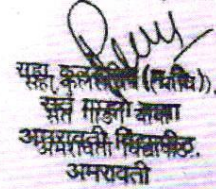 सहा. कुलसचिव
संत गाडगे बाबा
अमरावती विद्यापीठ.
अमरावती